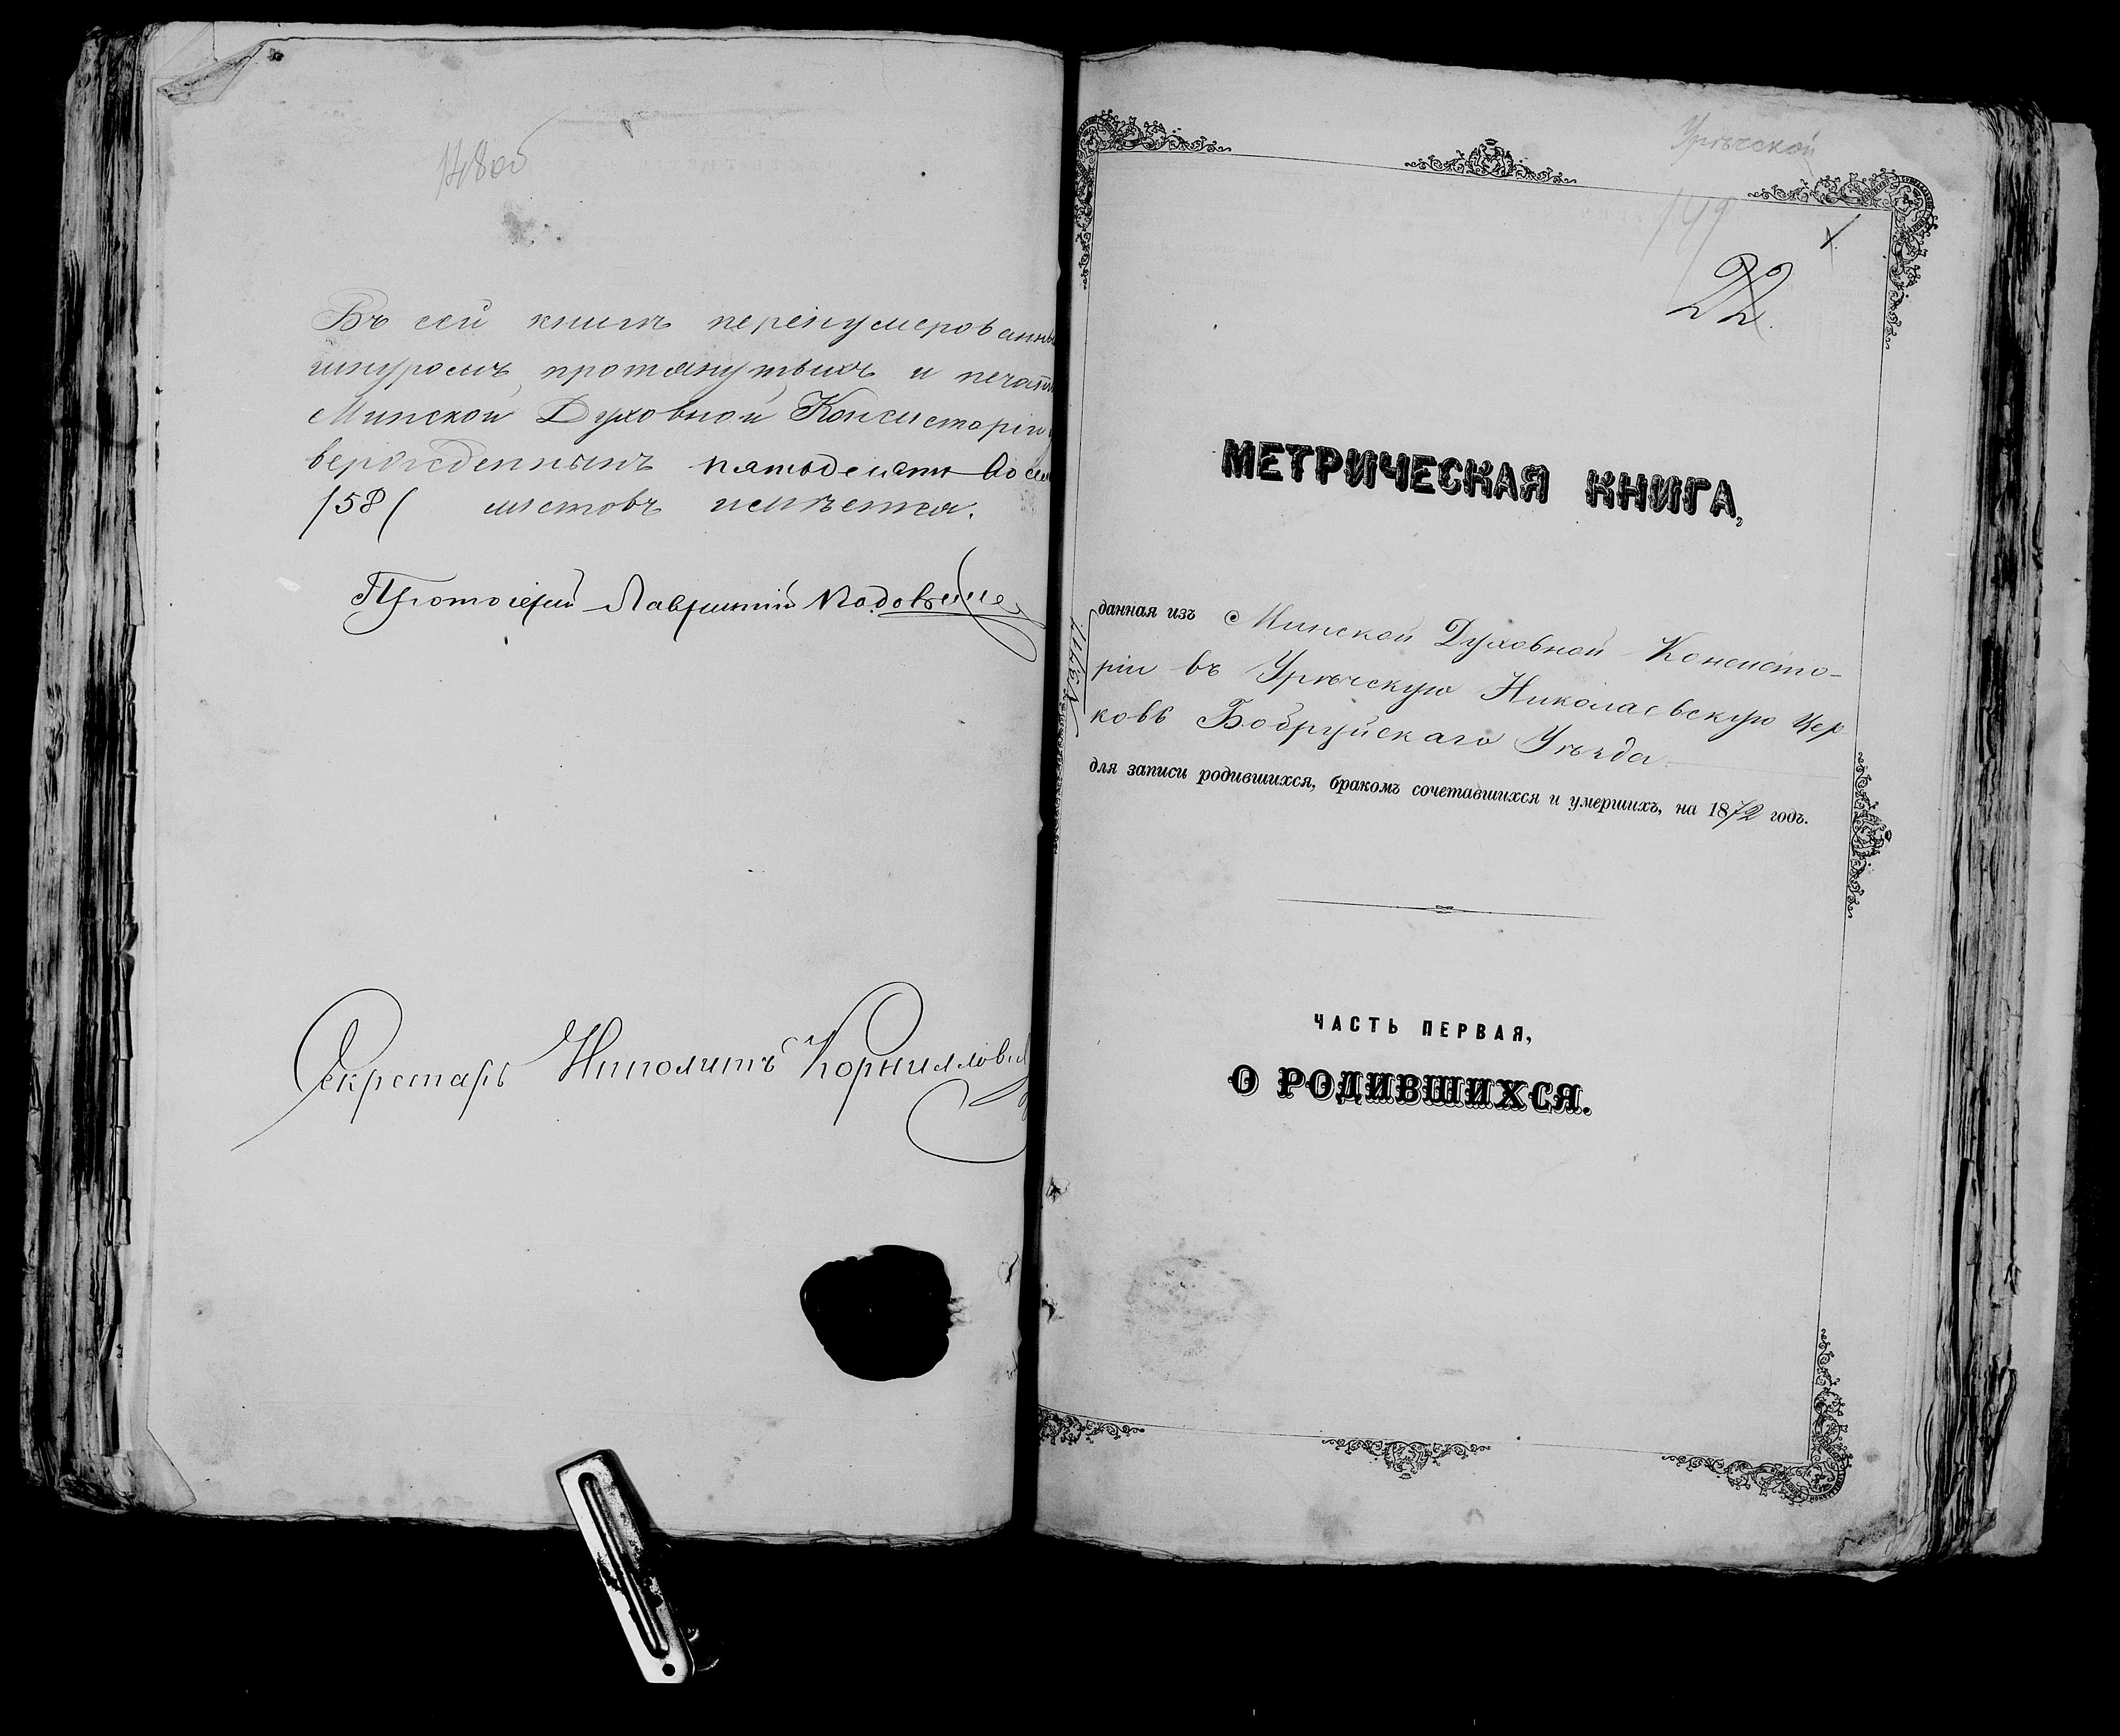 148об
Въ сей книгѣ перенумерованны
шнуромъ протянутыхъ и печат
Минской Духовной Консисторіи
вержденнымъ пятьдесятъ восем
/58/ листовъ имѣется.
Протоіерей Лаврентій
Секретарь Ипполитъ Корнилови
Урѣчской
149
22
МЕТРИЧЕСКАЯ КНИГА,
данная изъ Минской Духовной Консисто-
ріи въ Урѣчскую Николаевскую Цер
ковь Бобруйскаго Уѣзда
для записи родившихся, бракомъ сочетавшихся и умершихъ, на 1872 годъ.
ЧАСТЬ ПЕРВАЯ,
О РОДИВШИХСЯ.